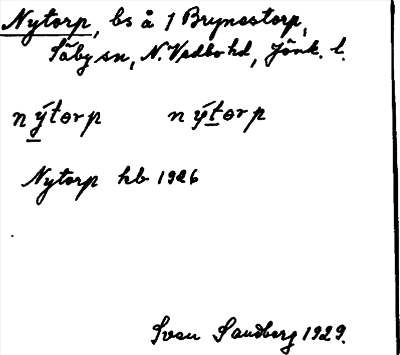 Nytorp, bs å 1 Brynestorp,
Säby sn, N. Vedbo hd, Jönk. l.
n ýtorp n ýtorp
Nytorp hb 1926
Sven Sandberg 1929.